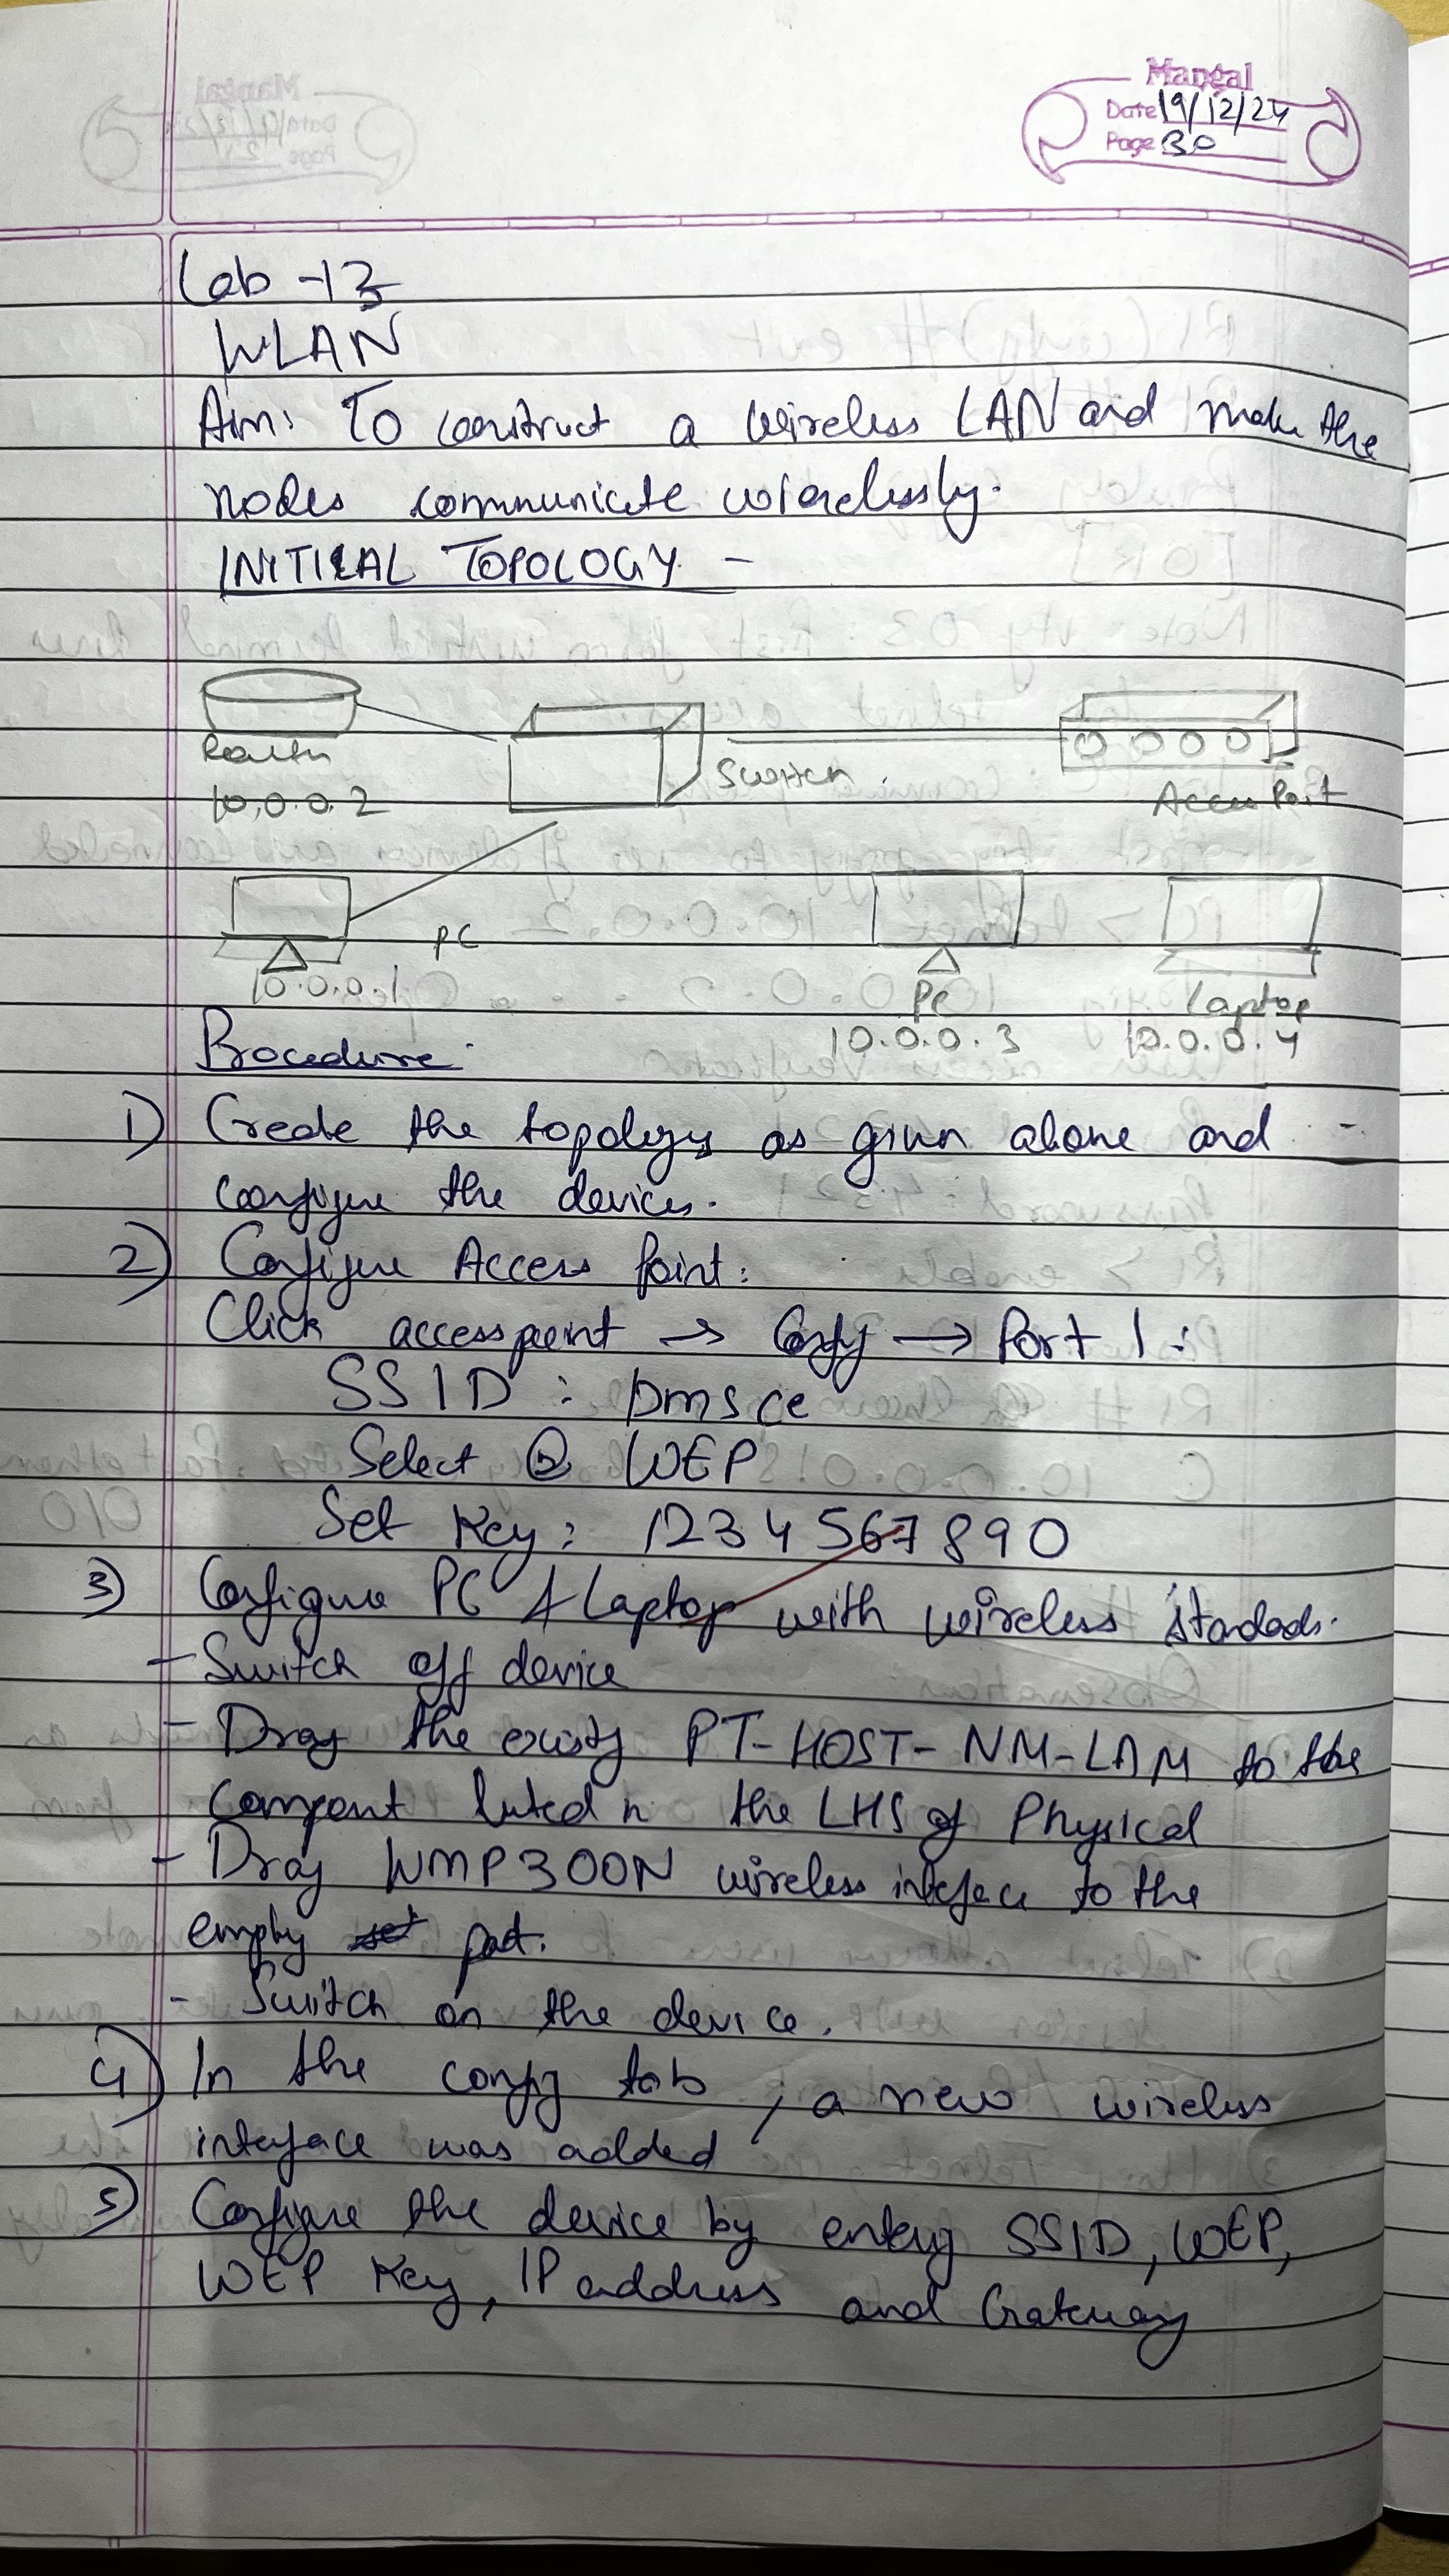 Mangal
Date 19/12/24
Page 30
Lab -13
WLAN
Aim: To construct a wireless LAN and make the
nodes communicate wirelessly.
INITIAL TOPOLOGY -
Router
Switch
10.0.0.2
Access Point
PC
10.0.0.1
PC
Laptop
10.0.0.3
10.0.0.4
Procedure:
1) Create the topology as given above and
configure the devices.
2) Configure Access Point:
Click access point → Config → Port 1:
SSID : bmsce
Select WEP
Set Key: 1234567890
3) Configure PC & Laptop with wireless standards.
- Switch off device
- Drag the existing PT-HOST-NM-1AM to the
component listed in the LHS of Physical
- Drag WMP300N wireless interface to the
empty port.
- Switch on the device.
4) In the config tab, a new wireless
interface was added
5) Configure the device by entering SSID, WEP,
WEP Key, IP address and Gateway